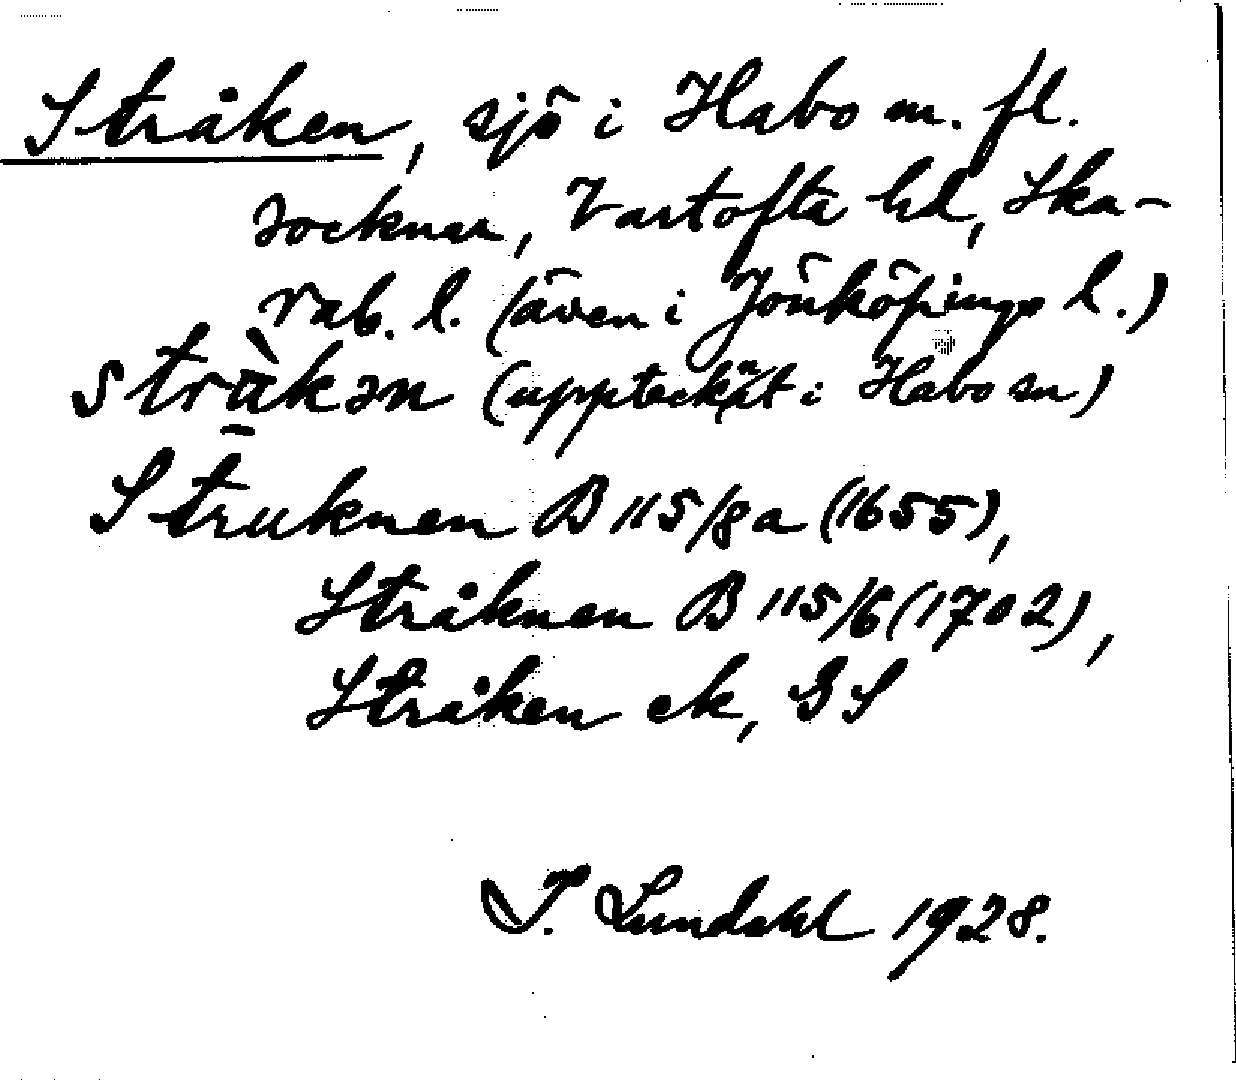 Stråken, sjö i Habo m. fl.
socknar, Vartofta hd, Ska-
rab. l. (även i Jönköpings l.)
stràkən (uppteckn̈at i Habo sn)
Struknen B 115/8a (1655),
Stråknen B 115/6 (1702),
Stråken ek, GS
I. Lundahl 1928.